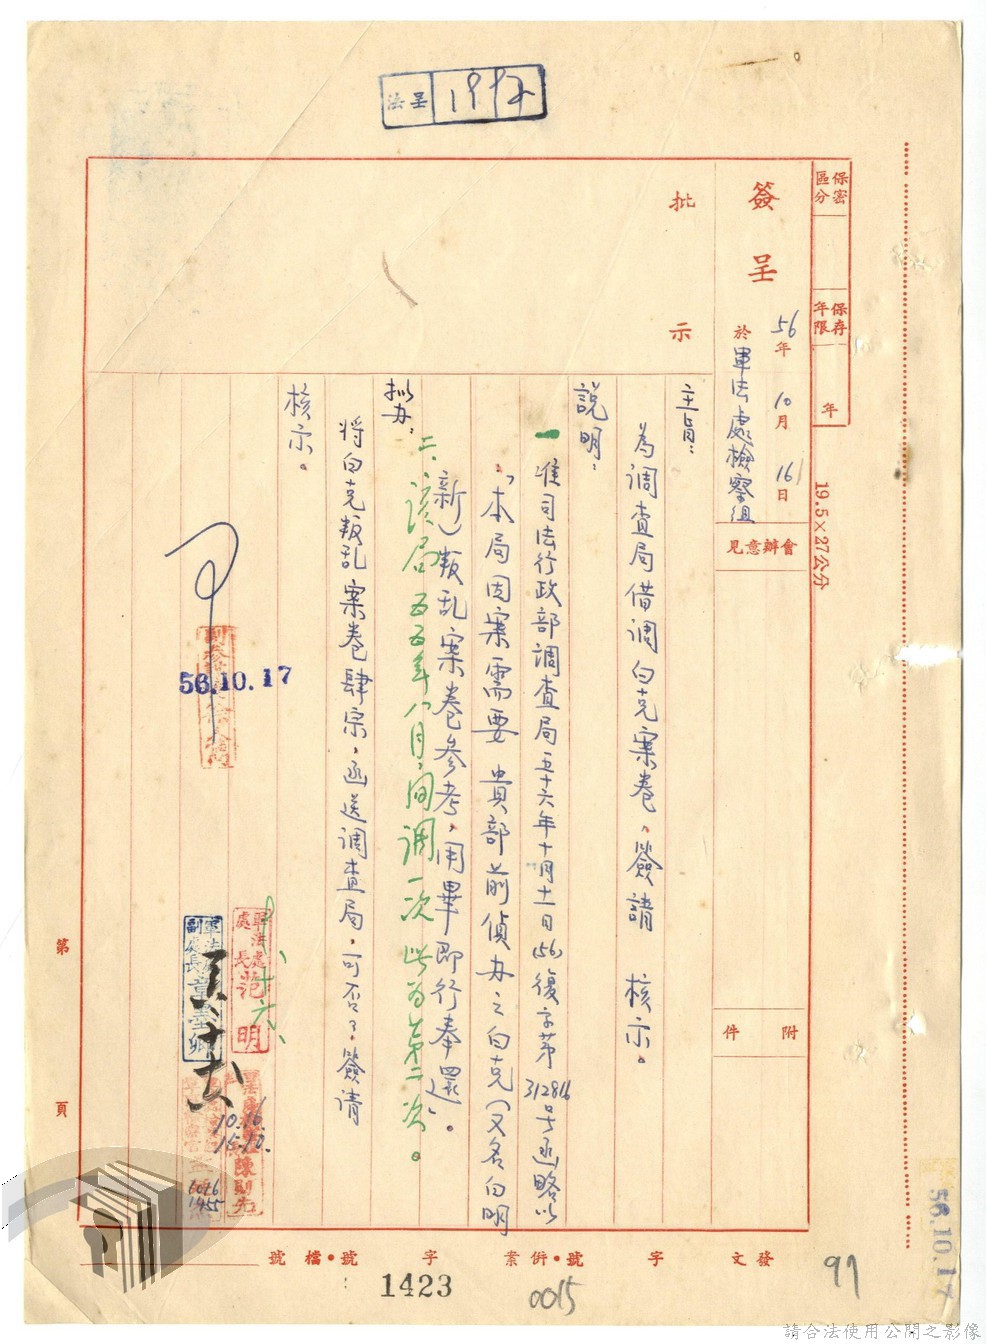 法呈 1992
保密區分
保存年限 年
19.5×27公分
簽呈 56年10月16日
於軍法處檢察組
會辦意見
附件
批示
主旨：
為調查局借調白克案卷，簽請 核示。
說明：
一、准司法行政部調查局五十六年十月十一日(56)復字第312816号函略以
：「本局因案需要 貴部前偵办之白克(又名白明
新)叛乱案卷參考，用畢即行奉還」。
二、該局五五年八月間調一次此為第二次。
拟办：
將白克叛乱案卷肆宗，函送調查局，可否？簽請
核示。
56.10.17
軍法處處長范明
軍法處副處長
10.16.
15.10.
1016
1455
第 頁
發文 字 號・併案 字 號・檔號
1423
0015
97
56.10.17
請合法使用公開之影像